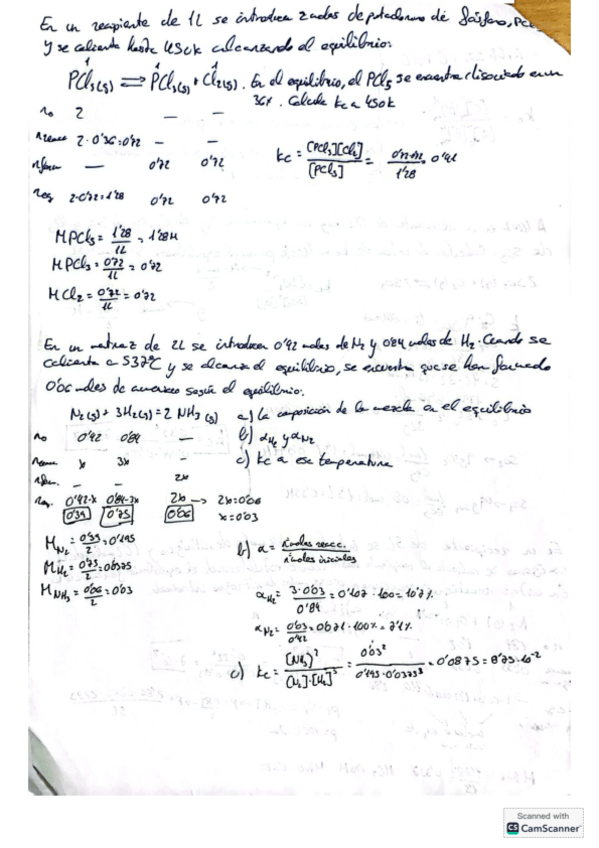 En un recipiente de 1L se introducen 2 moles de pentacloruro de fósforo, PCl
y se calienta hasta 450K alcanzando el equilibrio:
PCl5(g) ⇌ PCl3(g) + Cl2(g). En el equilibrio, el PCl5 se encuentra disociado en un
36%. Calcule Kc a 450K
no 2 — —
n reacc 2·0'36=0'72 — —
nform — 0'72 0'72
neq 2-0'72=1'28 0'72 0'72
Kc = [PCl3][Cl2] / [PCl5] = 0'72·0'72 / 1'28 = 0'41
M PCl5 = 1'28 / 1L = 1'28M
M PCl3 = 0'72 / 1L = 0'72
M Cl2 = 0'72 / 1L = 0'72
En un matraz de 2L se introducen 0'42 moles de N2 y 0'84 moles de H2. Cuando se
calienta a 537ºC y se alcanza el equilibrio, se encuentra que se han formado
0'06 moles de amoniaco según el equilibrio:
N2(g) + 3H2(g) = 2 NH3(g) a) la composición de la mezcla en el equilibrio
no 0'42 0'84 — b) αH2 y αN2
nreacc x 3x — c) Kc a esa temperatura
nform. — — 2x
neq. 0'42-x 0'84-3x 2x → 2x=0'06
0'39 0'75 0'06 x=0'03
M N2 = 0'39 / 2 = 0'195
M H2 = 0'75 / 2 = 0'375
M NH3 = 0'06 / 2 = 0'03
b) α = nºmoles reacc. / nºmoles iniciales
αH2 = 3·0'03 / 0'84 = 0'107·100 = 10'7%
αN2 = 0'03 / 0'42 = 0'071·100% = 7'1%
c) Kc = [NH3]² / [N2]·[H2]³ = 0'03² / 0'195·0'0375³ = 0'0875 = 8'75·10⁻²
Scanned with
CS CamScanner